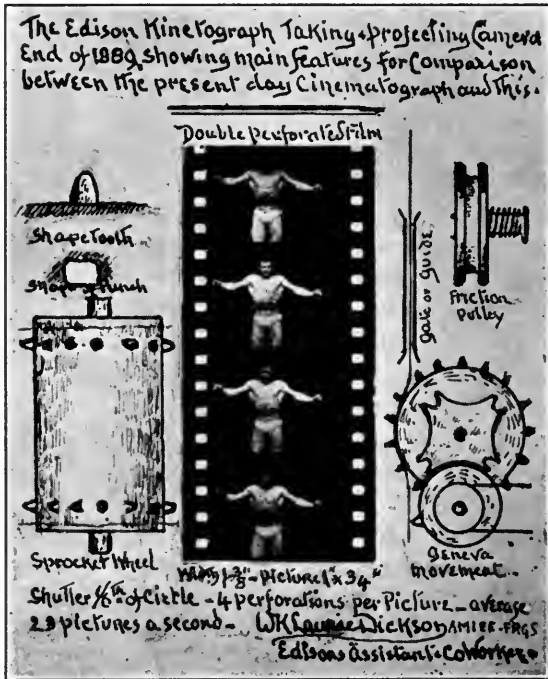 The Edison Kinetograph Taking & projecting Camera
End of 1889, Showing main features for Comparison
between the present day Cinematograph and This.
Double perforated Film
Shape Tooth
Shape Punch
Sprocket Wheel
gate or guide
Friction
Pulley
Geneva
movement
Width 1 3/8" - picture 1" x 3/4"
Shutter of Circle - 4 perforations per Picture - average
pictures a second - WKLaurie Dickson AMIEE-FRGS
Edisons assistant & CoWorker